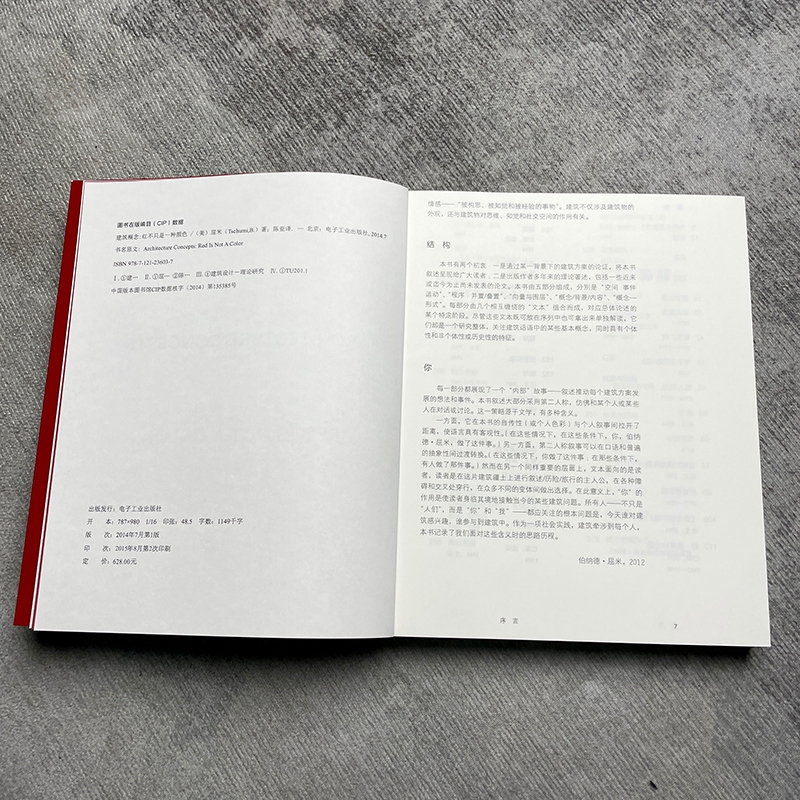 图书在版编目（CIP）数据
建筑概念:红不只是一种颜色 /（美）屈米（Tschumi,B.）著；陈亚译. — 北京：电子工业出版社, 2014.7
书名原文：Architecture Concepts: Red Is Not A Color
ISBN 978-7-121-23603-7
Ⅰ. ①建… Ⅱ. ①屈… ②陈… Ⅲ. ①建筑设计－理论研究 Ⅳ. ①TU201.1
中国版本图书馆CIP数据核字（2014）第135385号
出版发行：电子工业出版社
开 本：787×980 1/16 印张：48.5 字数：1149千字
版 次：2014年7月第1版
印 次：2015年8月第2次印刷
定 价：628.00元
情感——“被构思、被知觉和被经验的事物”。建筑不仅涉及建筑物的
外观，还与建筑物对思维、知觉和社交空间的作用有关。
结 构
本书有两个初衷：一是通过某一背景下的建筑方案的论证，将本书
叙述呈现给广大读者；二是出版作者多年来的理论著述，包括一些近来
或迄今为止尚未发表的论文。本书由五部分组成，分别是“空间 事件
运动”、“程序：并置/叠置”、“向量与围层”、“概念/背景/内容”、“概念—
形式”。每部分由几个相互缠绕的“文本”组合而成，对应总体论述的
某个特定阶段。尽管这些文本既可放在序列中也可拿出来单独解读，它
们却是一个研究整体，关注建筑话语中的某些基本概念，同时具有个体
性和非个体性或历史性的特征。
你
每一部分都展现了一个“内部”故事——叙述推动每个建筑方案发
展的想法和事件。本书叙述大部分采用第二人称，仿佛和某个人或某些
人在对话或讨论。这一策略源于文学，有多种含义。
一方面，它在本书的自传性（或个人色彩）与个人叙事间拉开了
距离，使语言具有客观性。（在这些情况下，在这些条件下，你，伯纳
德·屈米，做了这件事。）另一方面，第二人称叙事可以在口语和普遍
的抽象性间过渡转换。（在这些情况下，你做了这件事；在那些条件下，
有人做了那件事。）然而在另一个同样重要的层面上，文本面向的是读
者，读者是在这片建筑疆土上进行叙述/历险/旅行的主人公，在各种障
碍和交叉处穿行，在众多不同的变体间做出选择。在此意义上，“你”的
作用是使读者身临其境地接触当今的某些建筑问题。所有人——不只是
“人们”，而是“你”和“我”——都应关注的根本问题是，今天谁对建
筑感兴趣，谁参与到建筑中。作为一项社会实践，建筑牵涉到每个人，
本书记录了我们面对这些含义时的思路历程。
伯纳德·屈米，2012
序 言
7